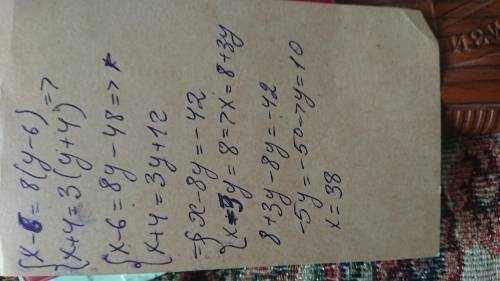 {x-6=8(y-6)
{x+4=3(y+4) =>
{x-6=8y-48 =>
{x+4=3y+12
={x-8y=-42
{x-3y=8=>x=8+3y
8+3y-8y=-42
-5y=-50->y=10
x=38